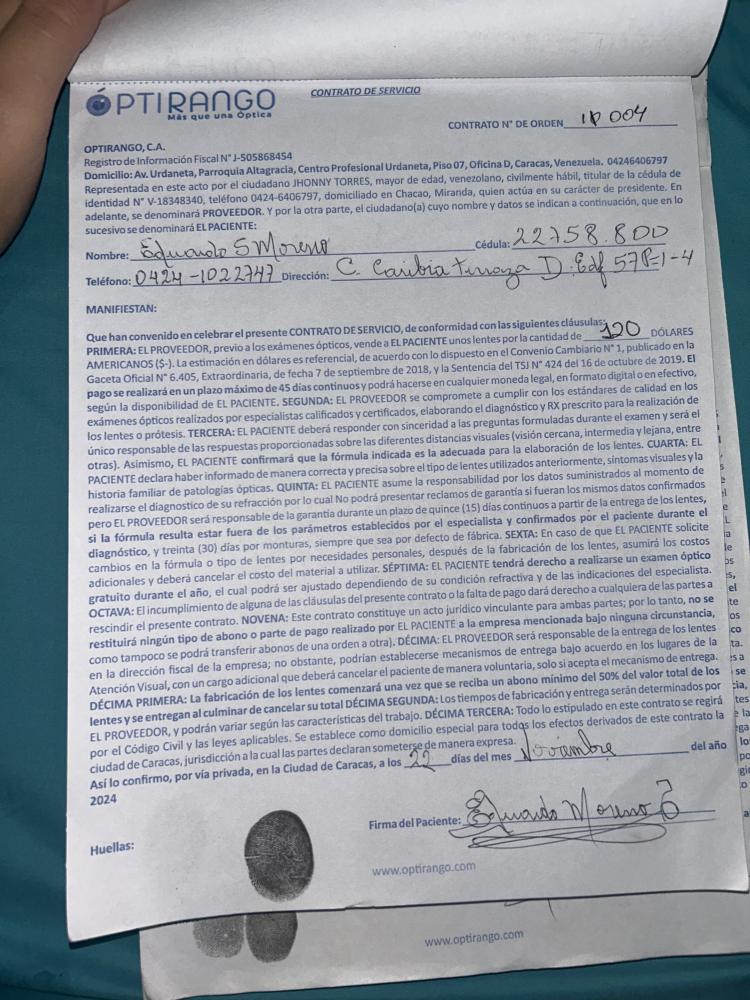 OPTIRANGO
Más que una Óptica
CONTRATO DE SERVICIO
CONTRATO N° DE ORDEN 10 004
OPTIRANGO, C.A.
Registro de Información Fiscal N° J-505868454
Domicilio: Av. Urdaneta, Parroquia Altagracia, Centro Profesional Urdaneta, Piso 07, Oficina D, Caracas, Venezuela. 04246406797
Representada en este acto por el ciudadano JHONNY TORRES, mayor de edad, venezolano, civilmente hábil, titular de la cédula de
identidad N° V-18348340, teléfono 0424-6406797, domiciliado en Chacao, Miranda, quien actúa en su carácter de presidente. En
adelante, se denominará PROVEEDOR. Y por la otra parte, el ciudadano(a) cuyo nombre y datos se indican a continuación, que en lo
sucesivo se denominará EL PACIENTE:
Nombre: Eduardo S Moreno Cédula: 22758.800
Teléfono: 0424-1022747 Dirección: C. Caribia terraza D. Edf 57 P-1-4
MANIFIESTAN:
Que han convenido en celebrar el presente CONTRATO DE SERVICIO, de conformidad con las siguientes cláusulas:
PRIMERA: EL PROVEEDOR, previo a los exámenes ópticos, vende a EL PACIENTE unos lentes por la cantidad de 120 DÓLARES
AMERICANOS ($-). La estimación en dólares es referencial, de acuerdo con lo dispuesto en el Convenio Cambiario N° 1, publicado en la
Gaceta Oficial N° 6.405, Extraordinaria, de fecha 7 de septiembre de 2018, y la Sentencia del TSJ N° 424 del 16 de octubre de 2019. El
pago se realizará en un plazo máximo de 45 días continuos y podrá hacerse en cualquier moneda legal, en formato digital o en efectivo,
según la disponibilidad de EL PACIENTE. SEGUNDA: EL PROVEEDOR se compromete a cumplir con los estándares de calidad en los
exámenes ópticos realizados por especialistas calificados y certificados, elaborando el diagnóstico y RX prescrito para la realización de
los lentes o prótesis. TERCERA: EL PACIENTE deberá responder con sinceridad a las preguntas formuladas durante el examen y será el
único responsable de las respuestas proporcionadas sobre las diferentes distancias visuales (visión cercana, intermedia y lejana, entre
otras). Asimismo, EL PACIENTE confirmará que la fórmula indicada es la adecuada para la elaboración de los lentes. CUARTA: EL
PACIENTE declara haber informado de manera correcta y precisa sobre el tipo de lentes utilizados anteriormente, síntomas visuales y la
historia familiar de patologías ópticas. QUINTA: EL PACIENTE asume la responsabilidad por los datos suministrados al momento de
realizarse el diagnostico de su refracción por lo cual No podrá presentar reclamos de garantía si fueran los mismos datos confirmados
pero EL PROVEEDOR será responsable de la garantía durante un plazo de quince (15) días continuos a partir de la entrega de los lentes,
si la fórmula resulta estar fuera de los parámetros establecidos por el especialista y confirmados por el paciente durante el
diagnóstico, y treinta (30) días por monturas, siempre que sea por defecto de fábrica. SEXTA: En caso de que EL PACIENTE solicite
cambios en la fórmula o tipo de lentes por necesidades personales, después de la fabricación de los lentes, asumirá los costos
adicionales y deberá cancelar el costo del material a utilizar. SÉPTIMA: EL PACIENTE tendrá derecho a realizarse un examen óptico
gratuito durante el año, el cual podrá ser ajustado dependiendo de su condición refractiva y de las indicaciones del especialista.
OCTAVA: El incumplimiento de alguna de las cláusulas del presente contrato o la falta de pago dará derecho a cualquiera de las partes a
rescindir el presente contrato. NOVENA: Este contrato constituye un acto jurídico vinculante para ambas partes; por lo tanto, no se
restituirá ningún tipo de abono o parte de pago realizado por EL PACIENTE a la empresa mencionada bajo ninguna circunstancia,
como tampoco se podrá transferir abonos de una orden a otra). DÉCIMA: EL PROVEEDOR será responsable de la entrega de los lentes
en la dirección fiscal de la empresa; no obstante, podrían establecerse mecanismos de entrega bajo acuerdo en los lugares de la
Atención Visual, con un cargo adicional que deberá cancelar el paciente de manera voluntaria, solo si acepta el mecanismo de entrega.
DÉCIMA PRIMERA: La fabricación de los lentes comenzará una vez que se reciba un abono mínimo del 50% del valor total de los
lentes y se entregan al culminar de cancelar su total DÉCIMA SEGUNDA: Los tiempos de fabricación y entrega serán determinados por
EL PROVEEDOR, y podrán variar según las características del trabajo. DÉCIMA TERCERA: Todo lo estipulado en este contrato se regirá
por el Código Civil y las leyes aplicables. Se establece como domicilio especial para todos los efectos derivados de este contrato la
ciudad de Caracas, jurisdicción a la cual las partes declaran someterse de manera expresa.
Así lo confirmo, por vía privada, en la Ciudad de Caracas, a los 22 días del mes Noviembre del año
2024
Firma del Paciente: Eduardo Moreno
Huellas:
www.optirango.com
www.optirango.com